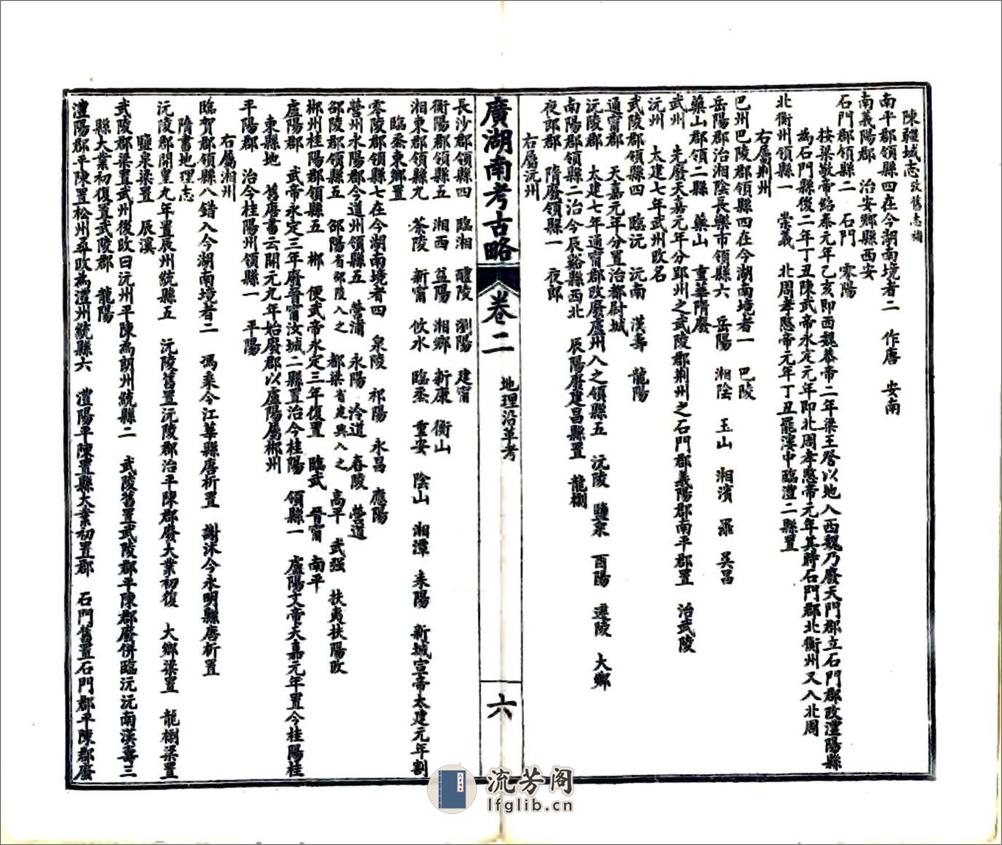 陳疆域志攷舊志補
南平郡領縣四在今湖南境者二　作唐　安南
南義陽郡　治安鄉縣西安
石門郡領縣二　石門　零陽
按梁敬帝紹泰元年乙亥即西魏恭帝二年梁王詧以地入西魏乃廢天門郡立石門郡改澧陽縣
為石門縣後二年丁丑陳武帝永定元年即北周孝愍帝元年其時石門郡北衡州又入北周
北衡州領縣一　崇義　北周孝愍帝元年丁丑罷漊中臨澧二縣置
右屬荊州
巴州巴陵郡領縣四在今湖南境者一　巴陵
岳陽郡治湘陰長樂市領縣六　岳陽　湘陰　玉山　湘濱　羅　吳昌
藥山郡領二縣　藥山　重華隋廢
武州　先廢天嘉元年分郢州之武陵郡荊州之石門郡義陽郡南平郡置　治武陵
沅州　太建七年武州改名
武陵郡領縣四　臨沅　沅南　漢壽　龍陽
通甯郡　天嘉元年分置治都尉城
沅陵郡　太建七年通甯郡改廢盧州入之領縣五　沅陵　鹽泉　酉陽　遷陵　大鄉
南陽郡領縣二治今辰谿縣西北　辰陽廢建昌縣置　龍㭁
夜郎郡　隋廢領縣一　夜郎
右屬沅州
廣湖南考古略　卷二　地理沿革考　六
長沙郡領縣四　臨湘　醴陵　瀏陽　建甯
衡陽郡領縣五　湘西　益陽　湘鄉　新康　衡山
湘東郡領縣九　茶陵　新甯　攸水　臨烝　重安　陰山　湘潭　耒陽　新城宣帝太建元年割
臨烝東鄉置
零陵郡領縣七在今湖南境者四　泉陵　祁陽　永昌　應陽
營州永陽郡今道州領縣五　營浦　永陽　泠道　舂陵　營道
邵陵郡領縣五　邵陽省邵陵入之　都梁省建興入之　高平　武强　扶夷扶陽改
郴州桂陽郡領縣五　郴　便武帝永定三年復置　臨武　晉甯　南平
盧陽郡　武帝永定三年廢晉甯汝城二縣置治今桂陽　領縣一　盧陽文帝天嘉元年置今桂陽桂
東縣地　舊唐書云開元九年始廢郡以盧陽屬郴州
平陽郡　治今桂陽州領縣一　平陽
右屬湘州
臨賀郡領縣八錯入今湖南境者二　馮乘今江華縣唐析置　謝沐今永明縣唐析置
隋書地理志
沅陵郡開皇九年置辰州統縣五　沅陵舊置沅陵郡治平陳郡廢大業初復　大鄉梁置　龍㭁梁置
鹽泉梁置　辰溪
武陵郡梁置武州後改曰沅州平陳為朗州統縣二　武陵舊置武陵郡平陳郡廢併臨沅沅南漢壽三
縣大業初復置武陵郡　龍陽
澧陽郡平陳置松州尋改為澧州統縣六　澧陽平陳置縣大業初置郡　石門舊置石門郡平陳郡廢
流芳阁
lfglib.cn